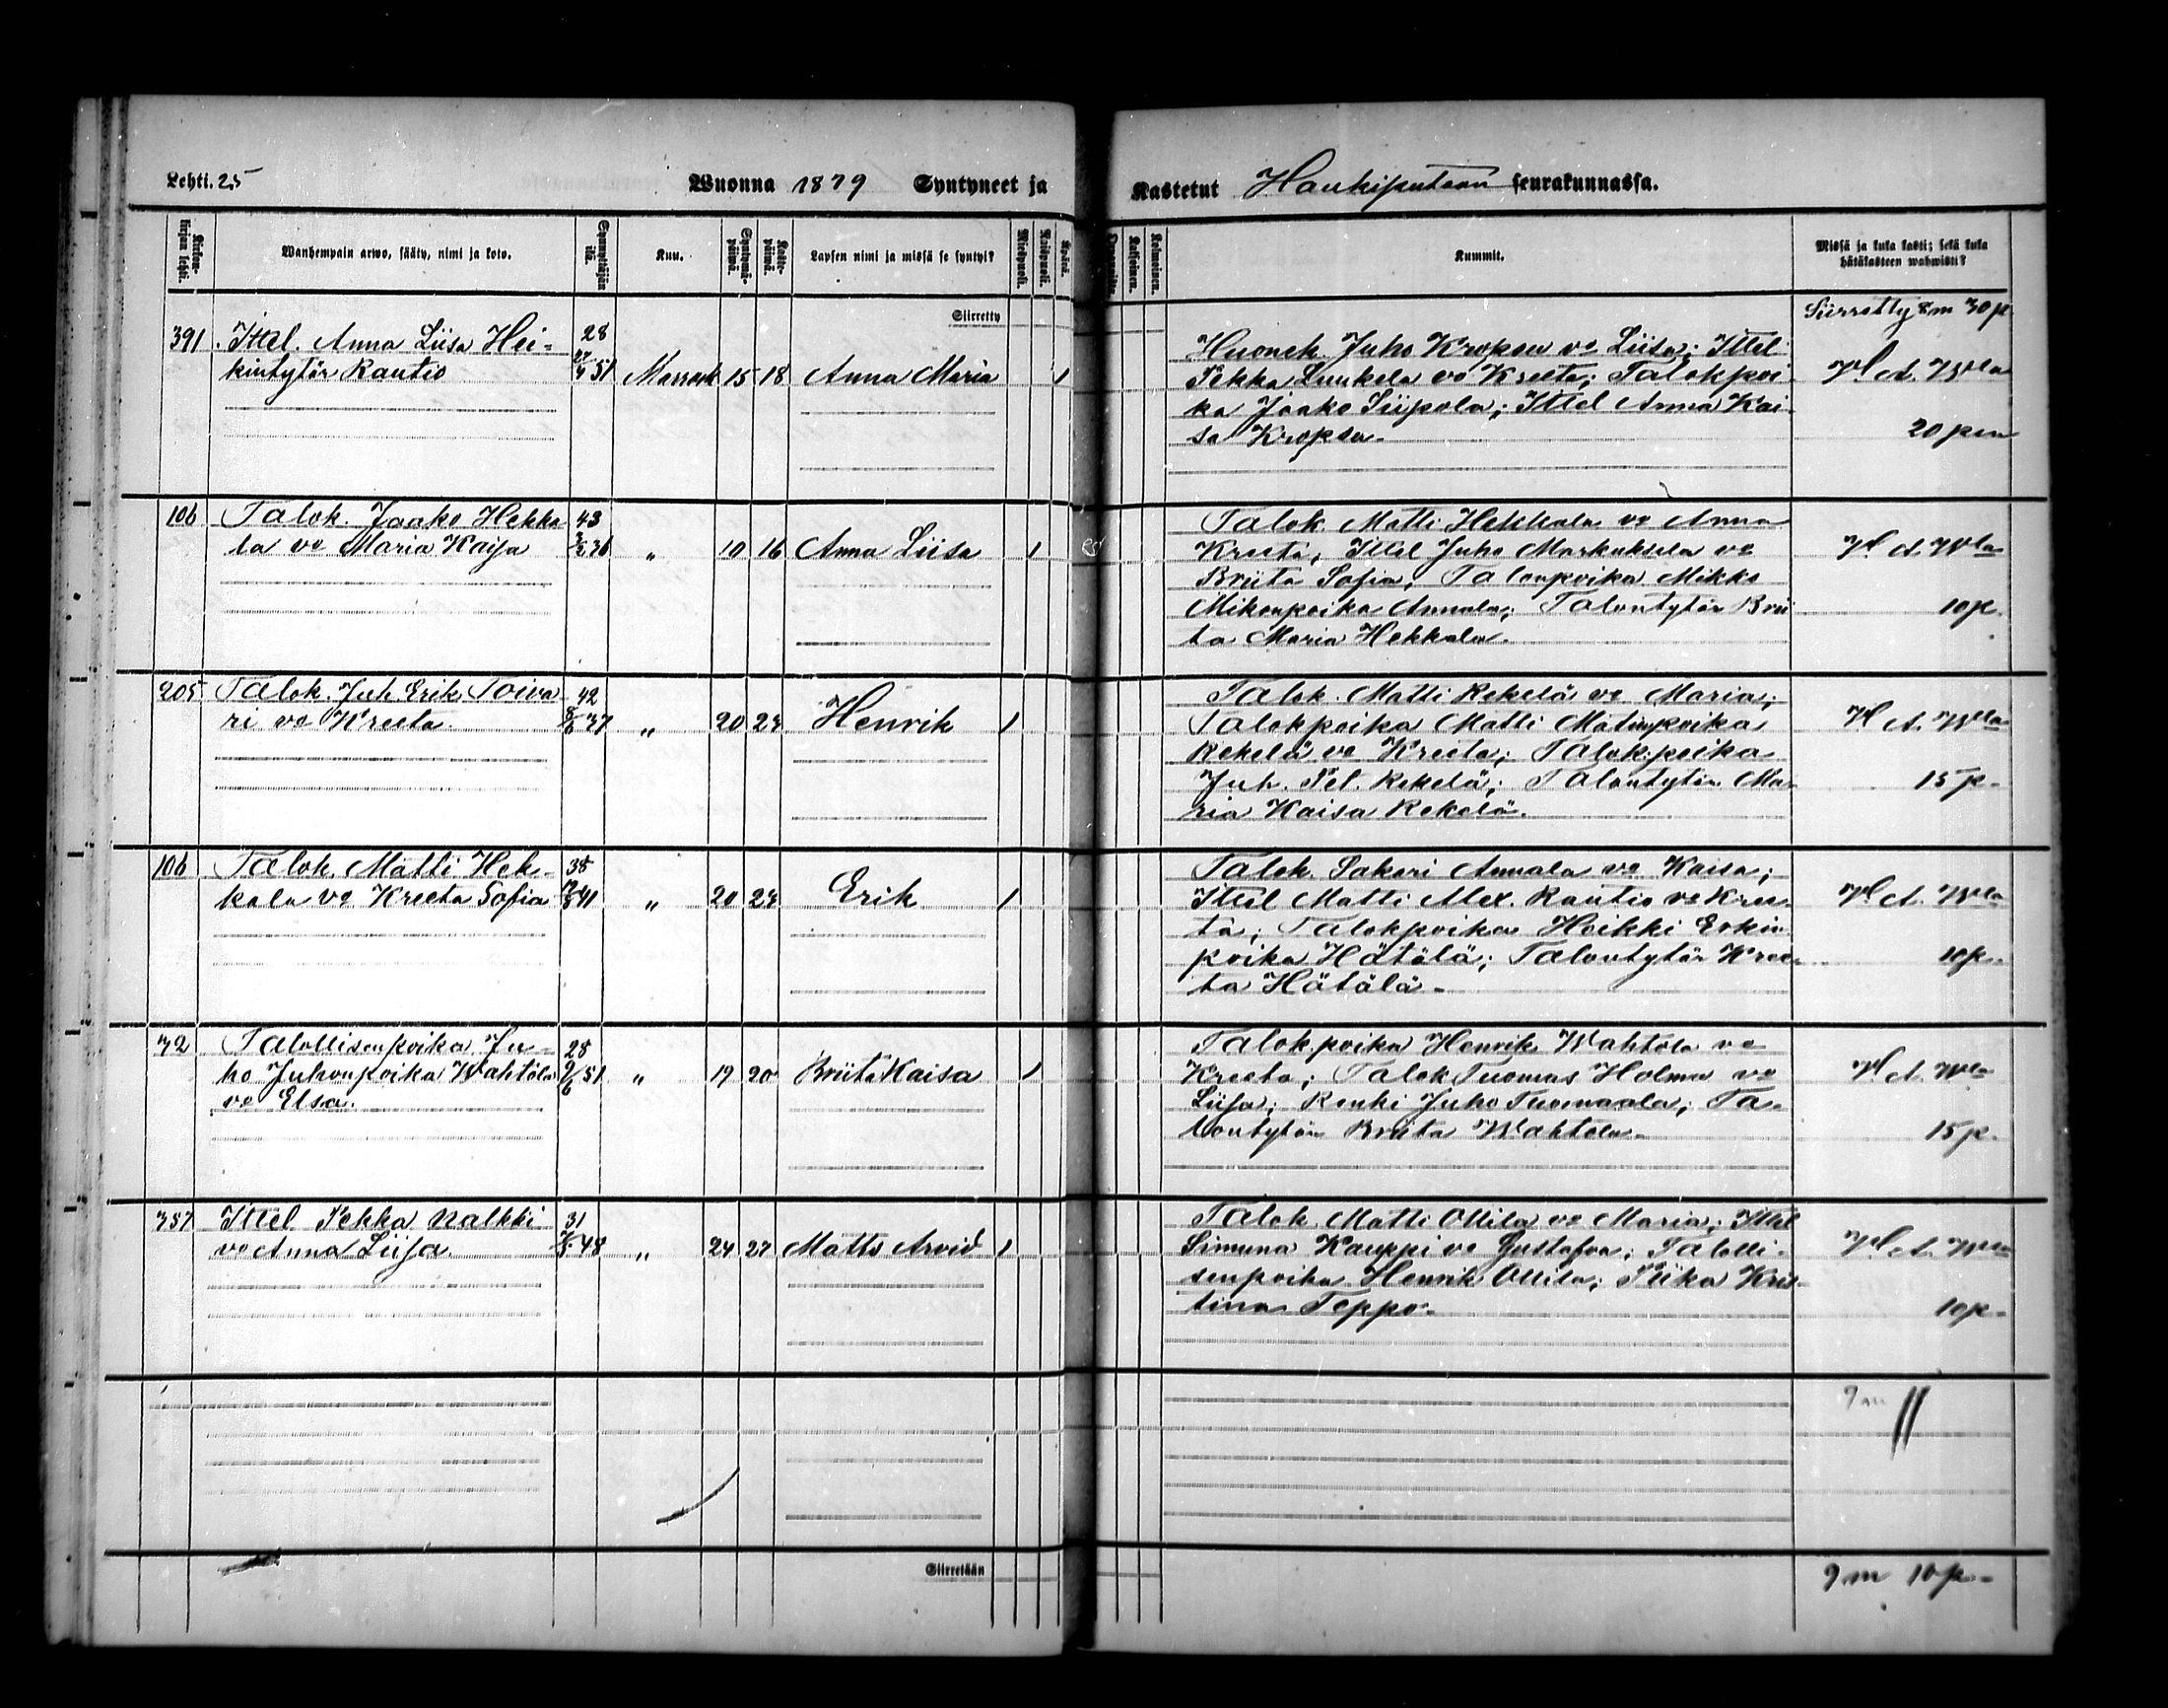 Lehti. 25 Wuonna 1879 Syntyneet ja Kastetut Haukiputaan seurakunnassa.
Kirkon-kirjan lehti. Wanhempain arwo, sääty, nimi ja koto. Synnyttäjän ikä. Kuu. Syntymä-päiwä. Kaste-päiwä. Lapsen nimi ja missä se syntyi? Miehenpuoli. Waimonpuoli. Kummit. Missä ja kuka kasti; sekä kuka hätäkasteen wahwisti?
Siirretty
Siirretty 8 m 30 p
391. Ittel. Anna Liisa Hei- 28
kintytär Rautio 51 Marrask 15 18 Anna Maria 1
Huonek. Juho Kropsu vo Liisa; Ittel
Pekka Luukela vo Kreeta; Talokpoi
ka Jaako Siipola; Ittel Anna Kai
sa Kropsu.
20 pen
106 Talok. Jaako Hekka 43
la vo Maria Kaisa 36 " 10 16 Anna Liisa 1
Talok. Matti Hekkala vo Anna
Kreeta; Ittel Juho Markuksela vo
Briita Sofia; Talonpoika Mikko
Mikonpoika Annala; Talontytär Brii
ta Maria Hekkala.
10 p.
205 Talok. Juh. Erik Toiva 42
ri vo Kreeta. 37 " 20 23 Henrik 1
Talok. Matti Rekelä vo Maria;
Talokpoika Matti Matinpoika
Rekelä vo Kreeta; Talok.poika
Juh. Pet. Rekelä; Talontytär Ma
ria Kaisa Rekelä.
15 p.
106 Talok. Matti Hek- 38
kala vo Kreeta Sofia 41 " 20 23 Erik 1
Talok. Sakari Annala vo Kaisa;
Ittel Matti Alex. Rautio vo Kree
ta; Talokpoika Heikki Erkin
poika Hätälä; Talontytär Kree
ta Hätälä.
10 p.
32 Talollisenpoika Ju- 28
ho Juhonpoika Wahtola 51 " 19 20 Briita Kaisa 1
vo Elsa.
Talok.poika Henrik Wahtola vo
Kreeta; Talok Tuomas Holma vo
Liisa; Renki Juho Tuomaala; Ta-
lontytär Briita Wahtola.
15 p.
357 Ittel Pekka Nalkki 31
vo Anna Liisa. 48 " 24 27 Matts Arvid 1
Talok. Matti Ollila vo Maria; Ittel
Simuna Kauppi vo Gustafva; Talolli-
senpoika Henrik Ollila; Piika Kris
tina Teppo.
10 p.
9 m
Siirretään
9 m 10 p.